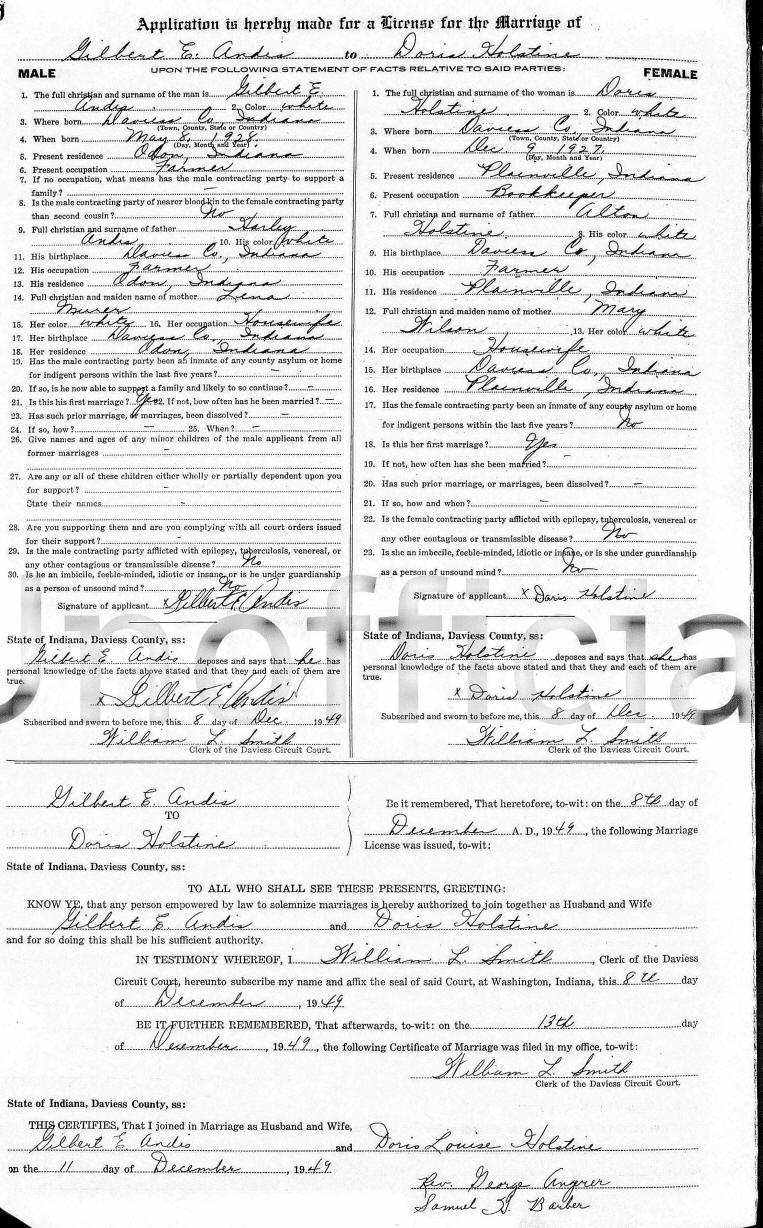 Application is hereby made for a License for the Marriage of
Gilbert E. Andis to Doris Holstine
MALE UPON THE FOLLOWING STATEMENT OF FACTS RELATIVE TO SAID PARTIES: FEMALE
1. The full christian and surname of the man is Gilbert E.
Andis 2. Color white
3. Where born Daviess Co., Indiana
(Town, County, State or Country)
4. When born May 8, 1928
(Day, Month and Year)
5. Present residence Odon, Indiana
6. Present occupation Farmer
7. If no occupation, what means has the male contracting party to support a
family? —
8. Is the male contracting party of nearer blood kin to the female contracting party
than second cousin? No
9. Full christian and surname of father Harley
Andis 10. His color white
11. His birthplace Daviess Co., Indiana
12. His occupation Farmer
13. His residence Odon, Indiana
14. Full christian and maiden name of mother Lena
15. Her color white 16. Her occupation Housewife
17. Her birthplace Daviess Co., Indiana
18. Her residence Odon, Indiana
19. Has the male contracting party been an inmate of any county asylum or home
for indigent persons within the last five years? —
20. If so, is he now able to support a family and likely to so continue? —
21. Is this his first marriage? Yes 22. If not, how often has he been married? —
23. Has such prior marriage, or marriages, been dissolved? —
24. If so, how? — 25. When? —
26. Give names and ages of any minor children of the male applicant from all
former marriages —
27. Are any or all of these children either wholly or partially dependent upon you
for support? -
State their names -
28. Are you supporting them and are you complying with all court orders issued
for their support? -
29. Is the male contracting party afflicted with epilepsy, tuberculosis, venereal, or
any other contagious or transmissible disease? No
30. Is he an imbicile, feeble-minded, idiotic or insane, or is he under guardianship
as a person of unsound mind? No
Signature of applicant x Gilbert E. Andis
State of Indiana, Daviess County, ss:
Gilbert E Andis deposes and says that he has
personal knowledge of the facts above stated and that they and each of them are
true.
x Gilbert E Andis
Subscribed and sworn to before me, this 8 day of Dec. 1949
William L. Smith
Clerk of the Daviess Circuit Court.
1. The full christian and surname of the woman is Doris
Holstine 2. Color white
3. Where born Daviess Co., Indiana
(Town, County, State or Country)
4. When born Dec 9 1927
(Day, Month and Year)
5. Present residence Plainville, Indiana
6. Present occupation Bookkeeper
7. Full christian and surname of father Alton
Holstine 8. His color white
9. His birthplace Daviess Co, Indiana
10. His occupation Farmer
11. His residence Plainville, Indiana
12. Full christian and maiden name of mother Mary
Wilson 13. Her color white
14. Her occupation Housewife
15. Her birthplace Daviess Co, Indiana
16. Her residence Plainville, Indiana
17. Has the female contracting party been an inmate of any county asylum or home
for indigent persons within the last five years? No
18. Is this her first marriage? Yes
19. If not, how often has she been married? —
20. Has such prior marriage, or marriages, been dissolved? —
21. If so, how and when? —
22. Is the female contracting party afflicted with epilepsy, tuberculosis, venereal or
any other contagious or transmissible disease? No
23. Is she an imbecile, feeble-minded, idiotic or insane, or is she under guardianship
as a person of unsound mind? No
Signature of applicant x Doris Holstine
State of Indiana, Daviess County, ss:
Doris Holstine deposes and says that she has
personal knowledge of the facts above stated and that they and each of them are
true.
x Doris Holstine
Subscribed and sworn to before me, this 8 day of Dec. 1949
William L. Smith
Clerk of the Daviess Circuit Court.
Unofficial
Gilbert E. Andis
TO
Doris Holstine
Be it remembered, That heretofore, to-wit: on the 8th day of
December A. D., 1949, the following Marriage
License was issued, to-wit:
State of Indiana, Daviess County, ss:
TO ALL WHO SHALL SEE THESE PRESENTS, GREETING:
KNOW YE, that any person empowered by law to solemnize marriages is hereby authorized to join together as Husband and Wife
Gilbert E. Andis and Doris Holstine
and for so doing this shall be his sufficient authority.
IN TESTIMONY WHEREOF, I William L. Smith, Clerk of the Daviess
Circuit Court, hereunto subscribe my name and affix the seal of said Court, at Washington, Indiana, this 8th day
of December, 1949
BE IT FURTHER REMEMBERED, That afterwards, to-wit: on the 13th day
of December, 1949, the following Certificate of Marriage was filed in my office, to-wit:
William L. Smith
Clerk of the Daviess Circuit Court.
State of Indiana, Daviess County, ss:
THIS CERTIFIES, That I joined in Marriage as Husband and Wife,
Gilbert E. Andis and Doris Louise Holstine
on the 11 day of December, 1949
Rev. George
Samuel Barber